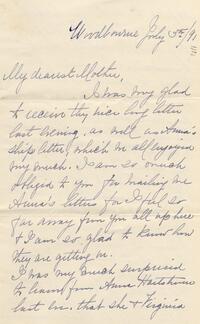 Woodbourne July 5th/91
My dearest Mother,
I was very glad
to receive thy nice long letter
last evening, as well as Anna's
ship letter, which we all enjoyed
very much. I am so much
obliged to you for mailing me
Anna's letters for I feel so
far away from you all up here
& I am so glad to know how
they are getting on.
I was very much surprised
to learn from Anna Hartshorne
last ev. that she & Virginia